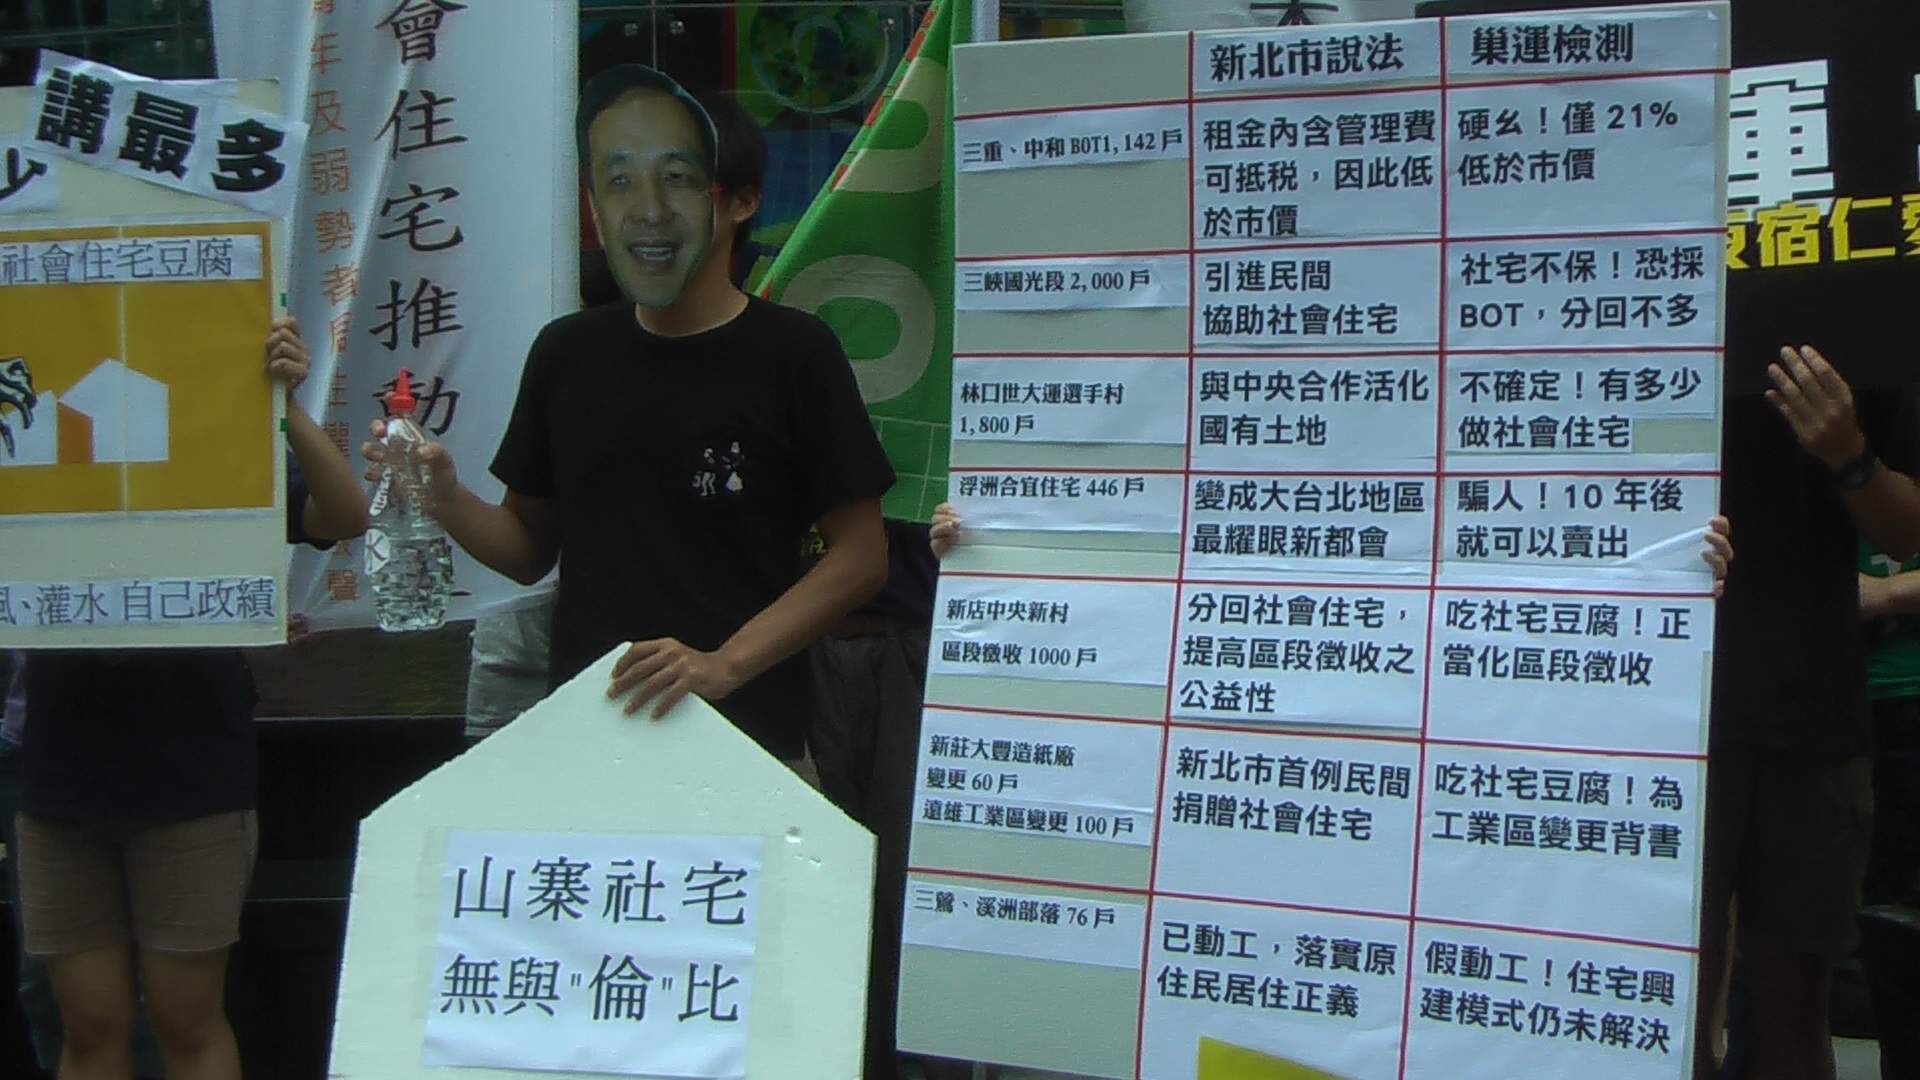 講最多
少
社會住宅豆腐
灌水 自己政績
會住宅推動
年及弱勢者居住權
聲
山寨社宅
無與"倫"比
新北市說法
巢運檢測
三重、中和 BOT1,142戶
租金內含管理費
可抵稅，因此低
於市價
硬幺！僅 21%
低於市價
三峽國光段 2,000戶
引進民間
協助社會住宅
社宅不保！恐採
BOT，分回不多
林口世大運選手村
1,800戶
與中央合作活化
國有土地
不確定！有多少
做社會住宅
浮洲合宜住宅 446戶
變成大台北地區
最耀眼新都會
騙人！10 年後
就可以賣出
新店中央新村
區段徵收 1000戶
分回社會住宅，
提高區段徵收之
公益性
吃社宅豆腐！正
當化區段徵收
新莊大豐造紙廠
變更 60戶
遠雄工業區變更 100戶
新北市首例民間
捐贈社會住宅
吃社宅豆腐！為
工業區變更背書
三鶯、溪洲部落 76戶
已動工，落實原
住民居住正義
假動工！住宅興
建模式仍未解決
水
宿仁